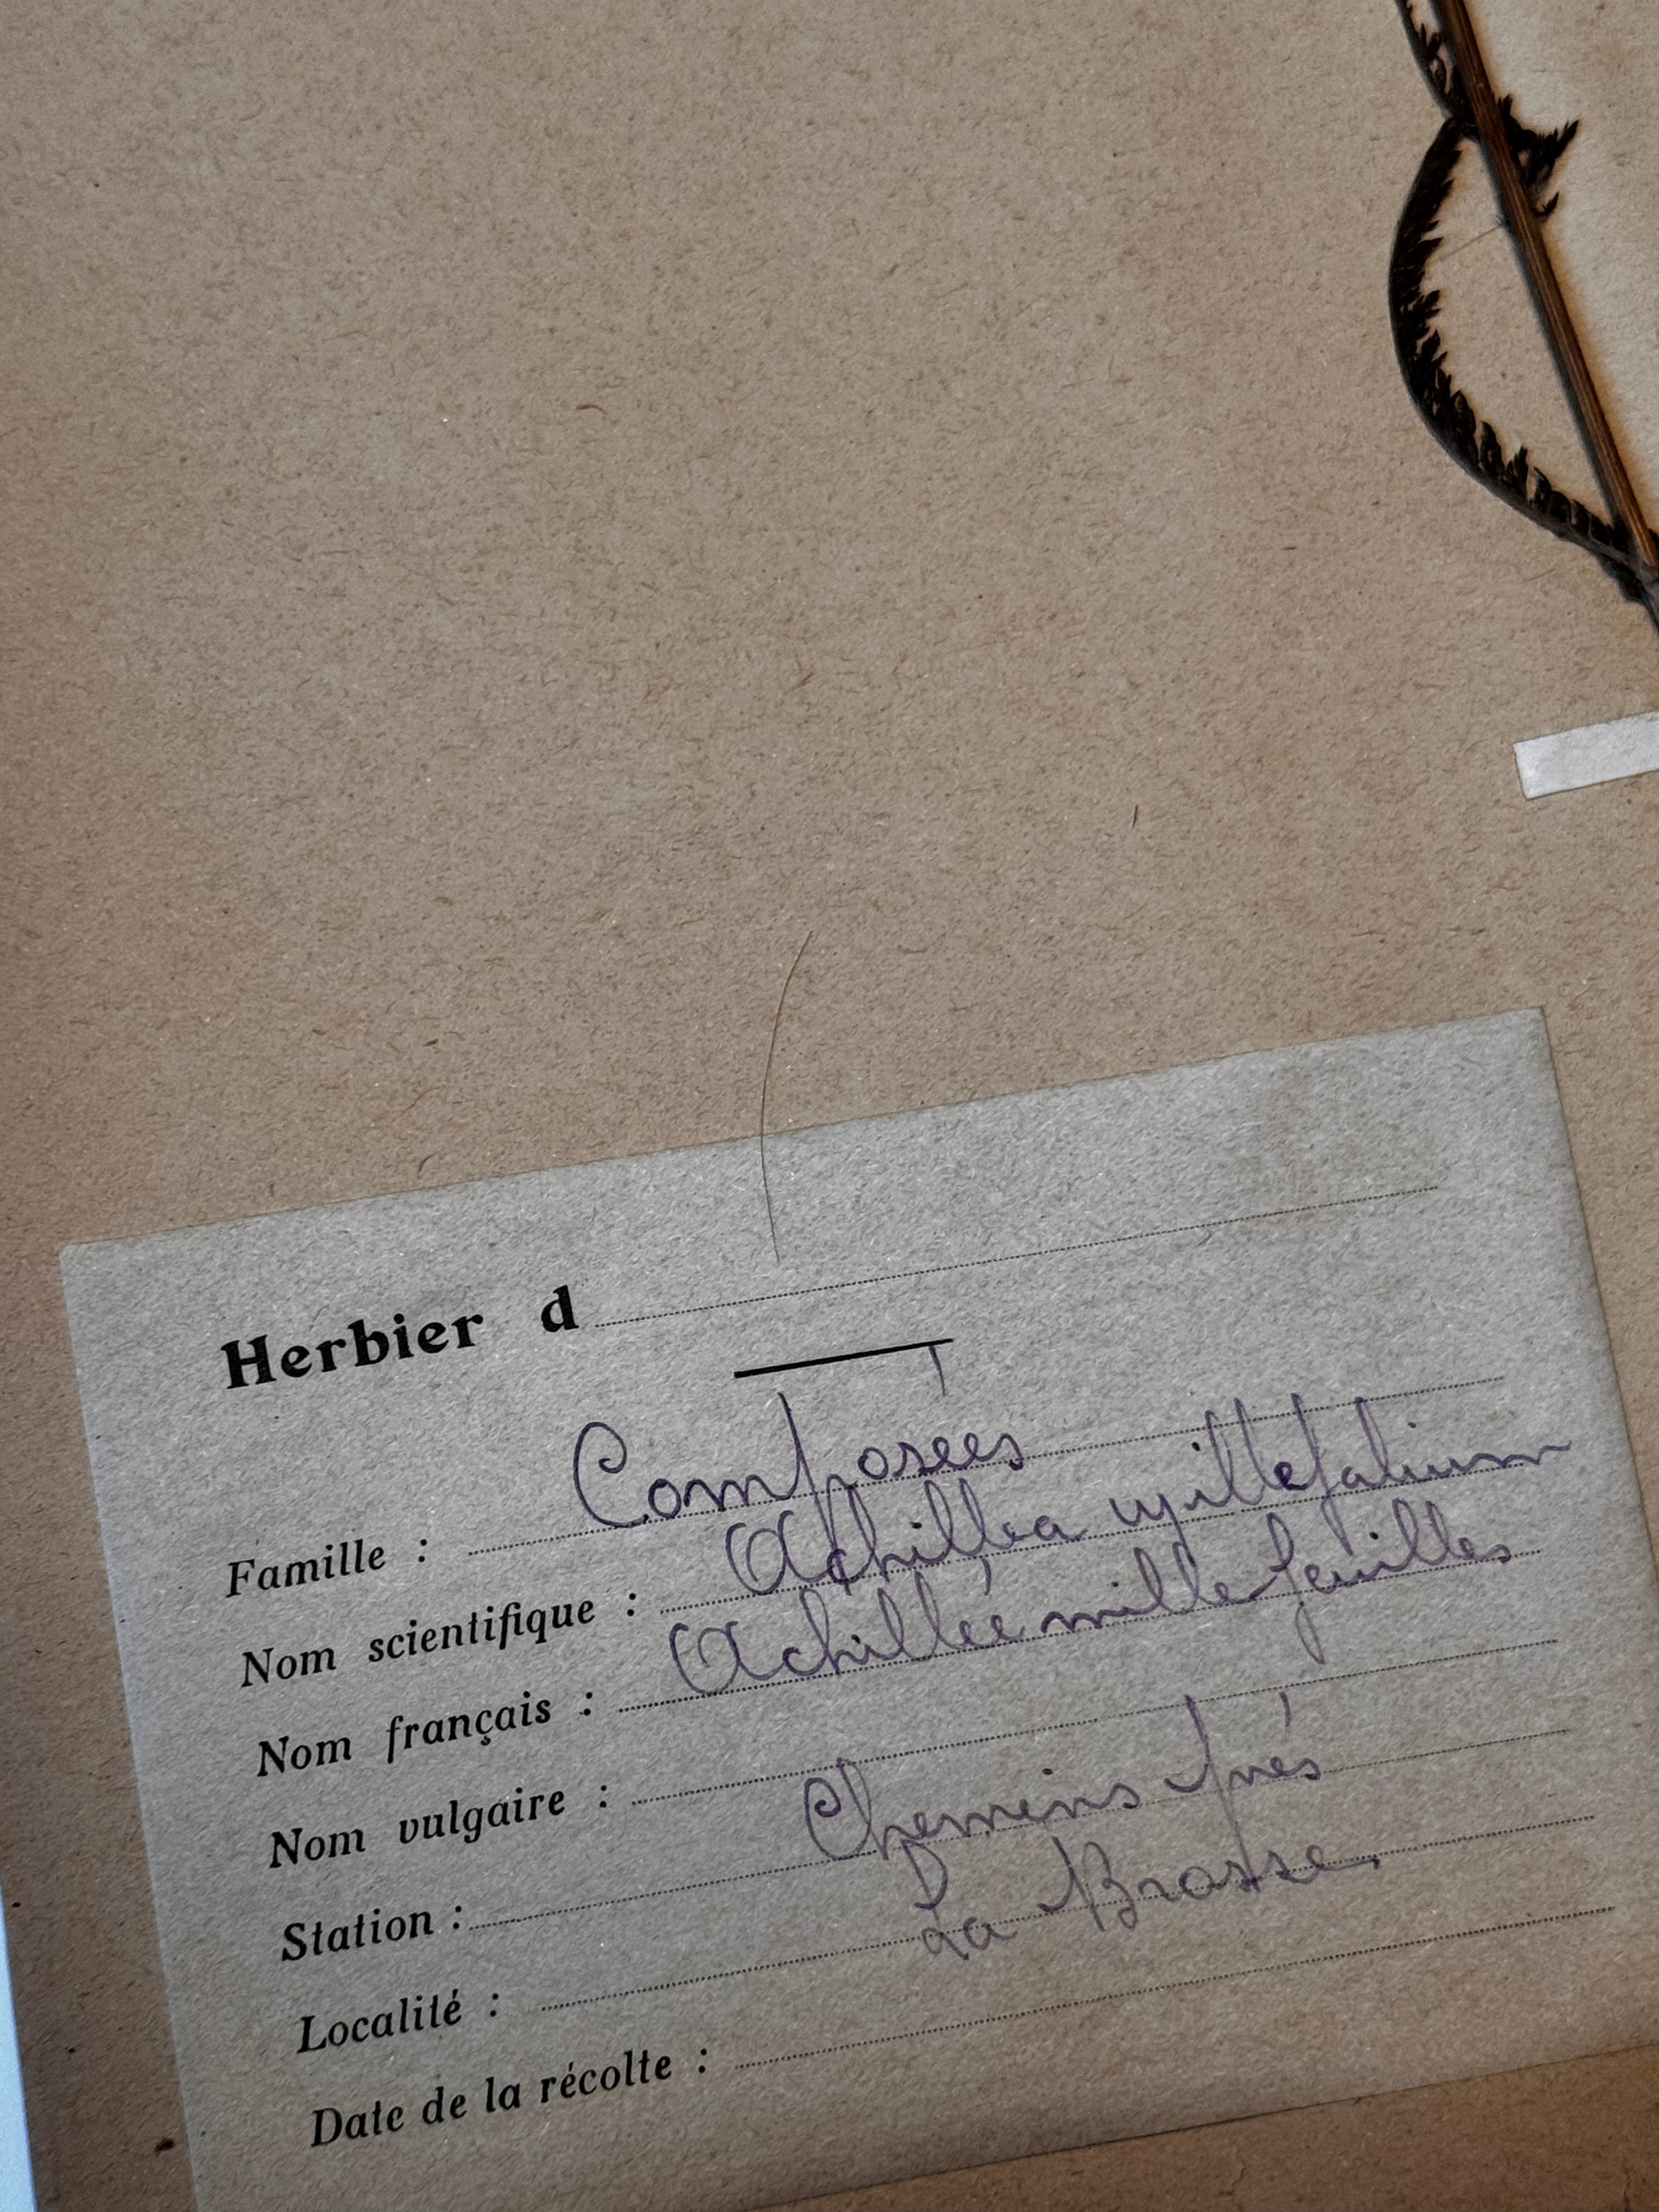 Herbier d
Famille : Composées
Nom scientifique : Achillea millefolium
Nom français : Achillée mille feuilles
Nom vulgaire :
Station : Chemins prés
Localité : La Brosse.
Date de la récolte :